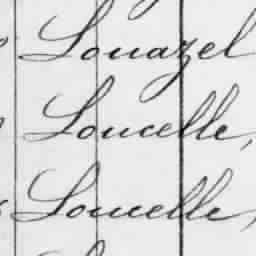 Louazel
Loucelle,
Loucelle,